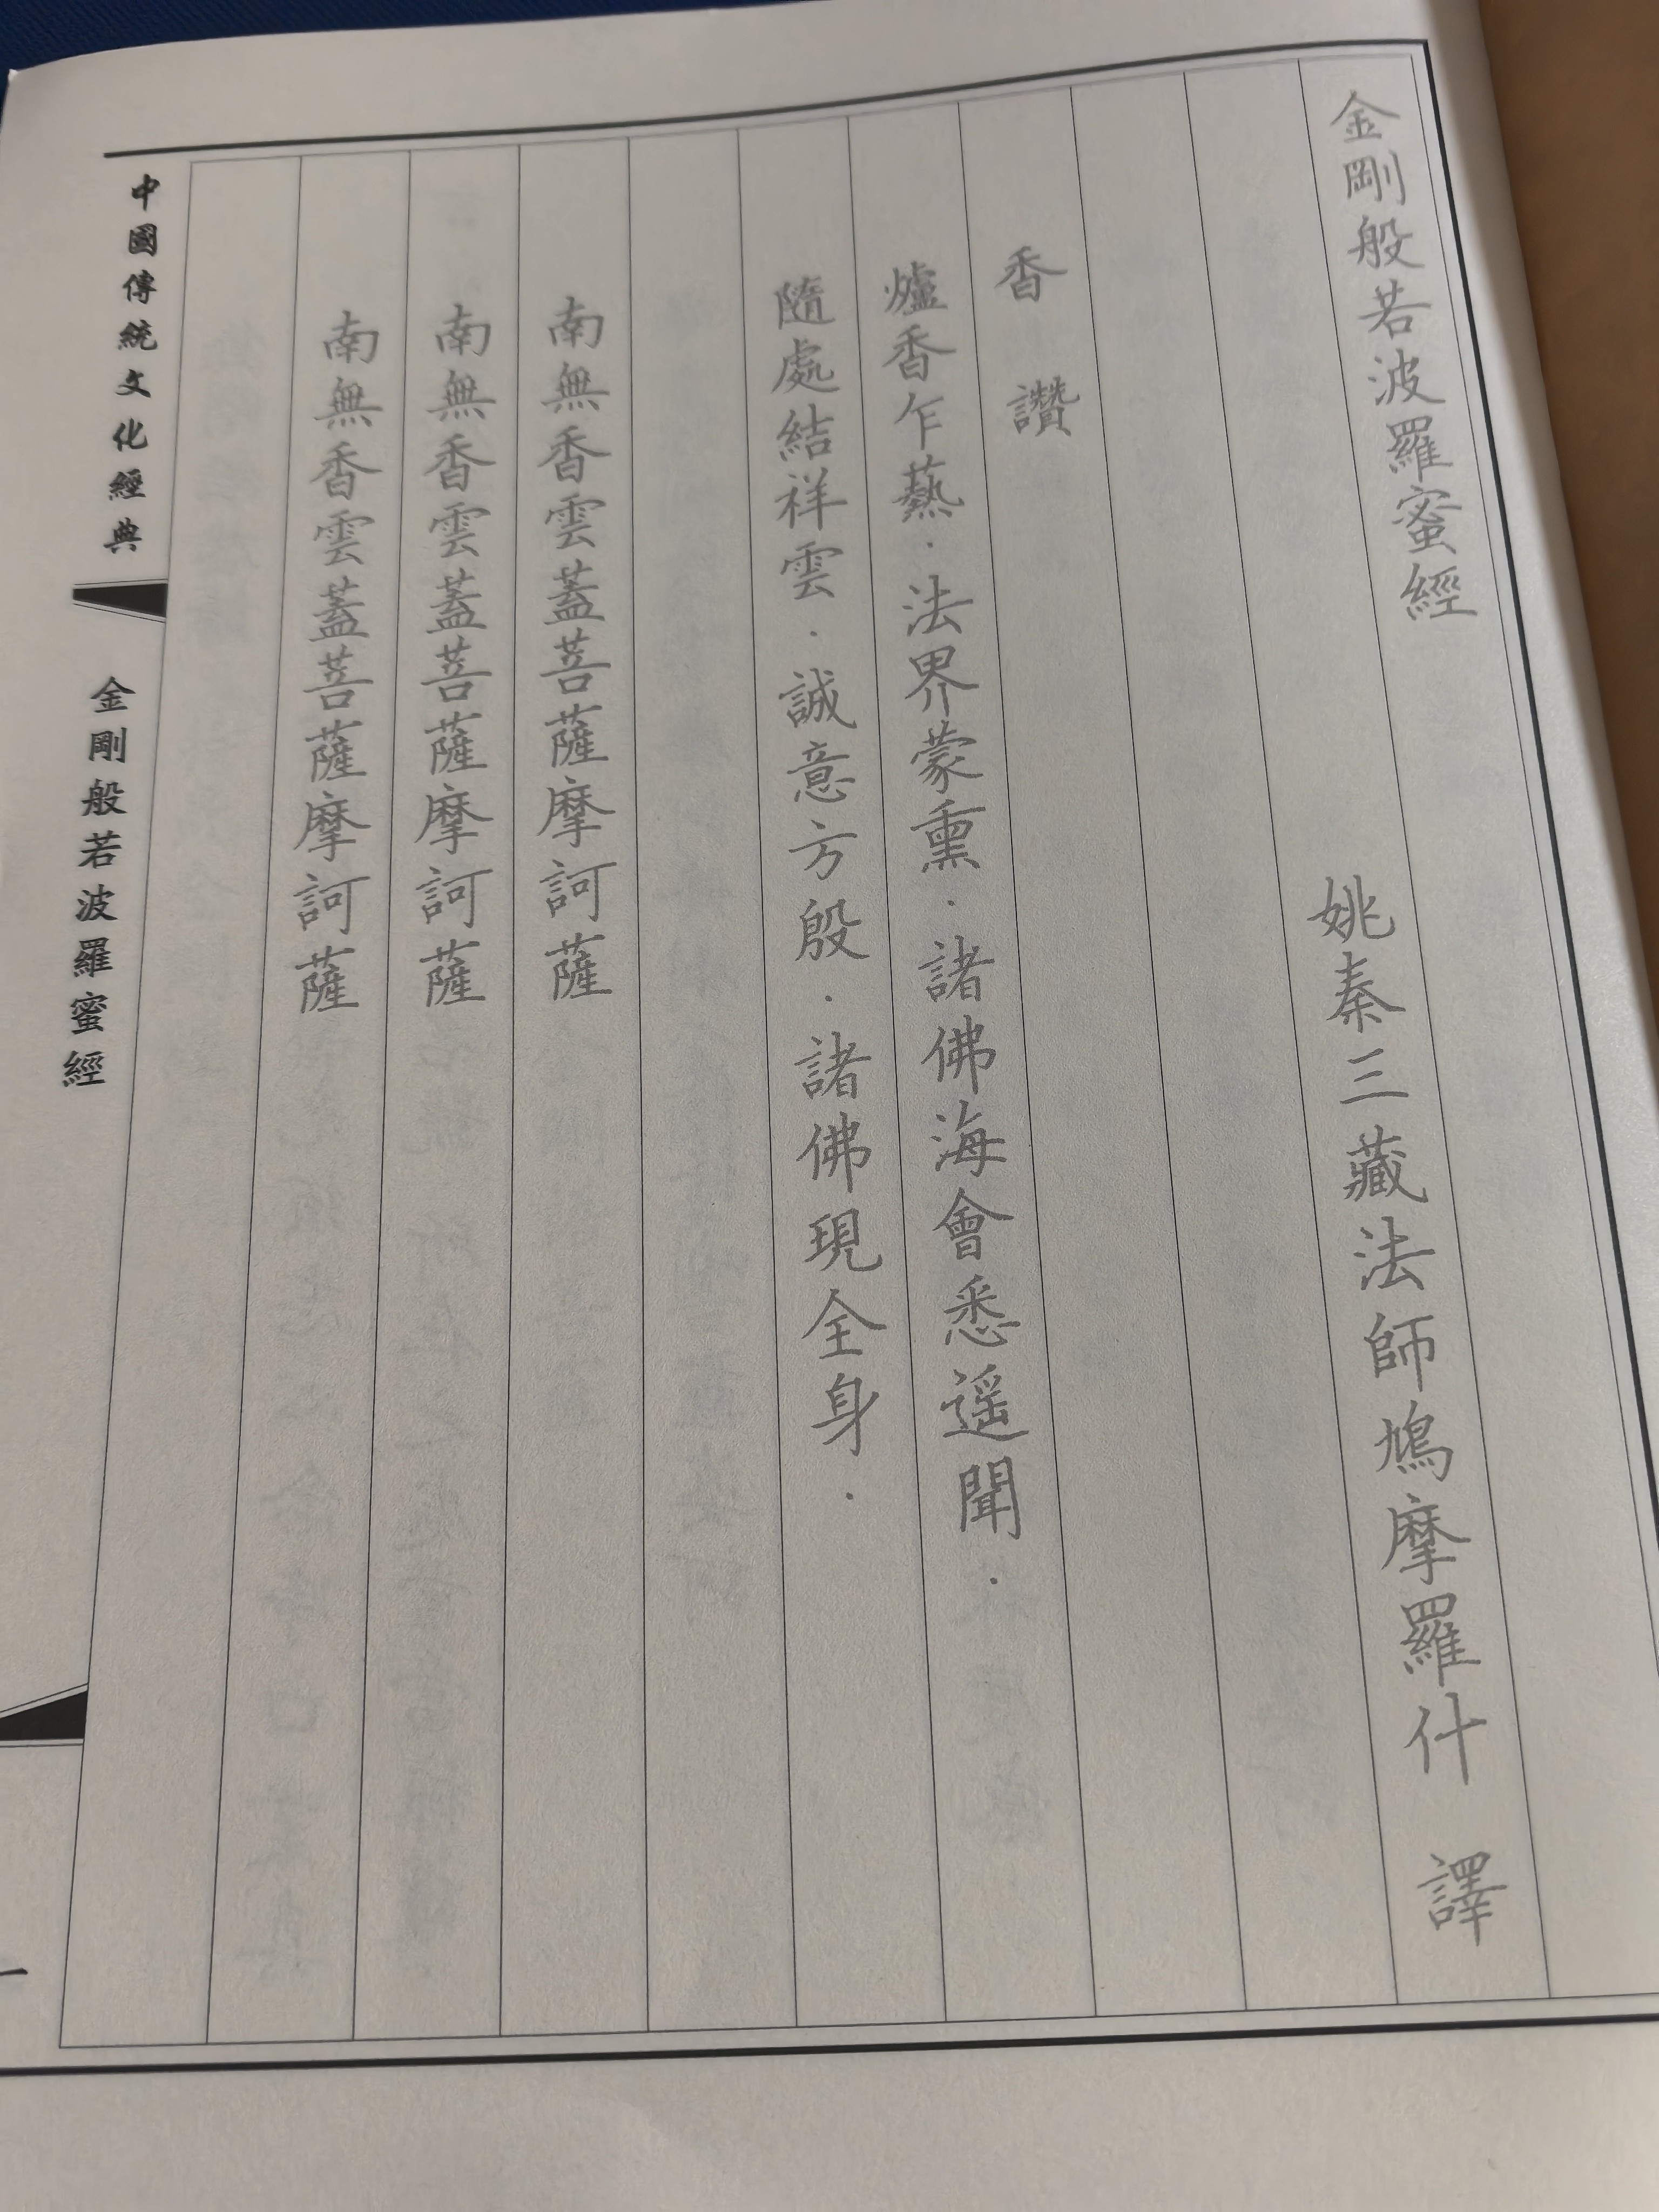 金剛般若波羅蜜經
姚秦三藏法師鳩摩羅什 譯
香 讚
爐香乍爇．法界蒙熏．諸佛海會悉遥聞．
隨處結祥雲．誠意方殷．諸佛現全身．
南無香雲蓋菩薩摩訶薩
南無香雲蓋菩薩摩訶薩
南無香雲蓋菩薩摩訶薩
中國傳統文化經典
金剛般若波羅蜜經
一